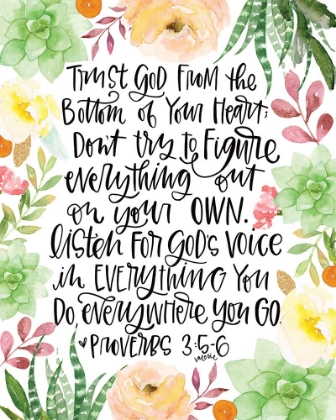 Trust GOD FROM the
Bottom of Your Heart;
Don't try to Figure
everything out
on your OWN.
listen FOR GOD'S VOICE
in EVERYTHING YOU
DO everywhere You GO.
PROVERBS 3:5-6
valerie